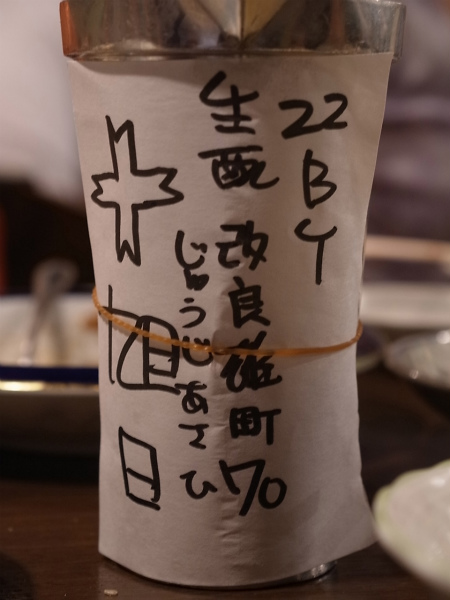 22BY
生酛 改良雄町70
じゅうじあさひ
十旭日